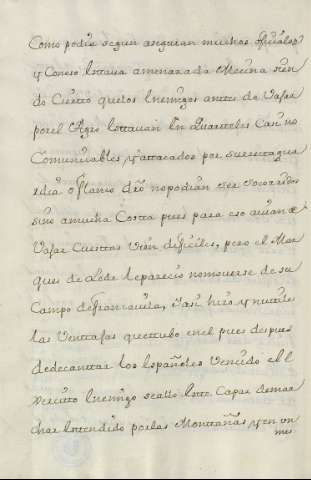 Como podia segun asegurian muchos oficiales
y Coneso estava amenazada Mecina sien
do Cierto que los Enemigos antes de Vajar
por el Agro estavan En quarteles Casi no
Comunicables, y attacados por su retaguar
dia o flanco dro no podian ser socorridos
sino a mucha Costa pues para eso avian de
Vajar Cuestas Vien dificiles, pero el Mar
ques de Lede le parecio no moverse de su
Campo de francavila, Casi hizo ynutiles
las Ventajas que ttubo en el pues despues
de decantar los Españoles Vencido el E
xercito Enemigo se allo este Capaz de mar
char Estendido por las Montañas, y en un
mes